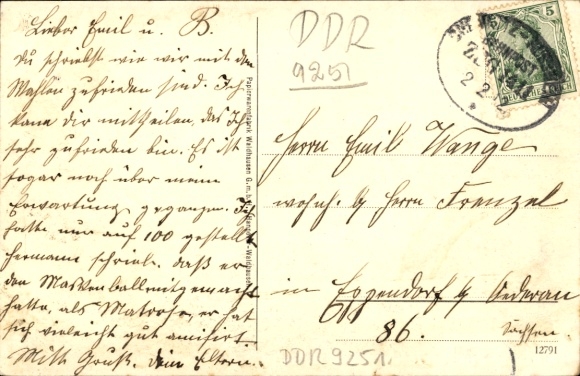 Lieber Emil u. B.
Du schriebst wie wir mit den
Wahlen zufrieden sind. Ich
kann dir mittheilen, das Ich
sehr zufrieden bin. Es ist
sogar noch über meine
Erwartung gegangen. Ich
hatte nur auf 100 gestellt
hermann schrieb, daß er
den Maskenball mitgemacht
hatte, als Matrose, er hat
sich vieleicht gut amisirt.
Mitt Gruß, dein Eltern.
Papierwarenfabrik Waldhausen G.m.b.H.
DDR
9251
5
DEUTSCHES REICH
BAHNPOST
ZUG
Herrn Emil Wange
wohnh. b/ Herrn Frenzel
in Eppendorf b/ Oederan
86.
Sachsen
DDR 9251.
12791